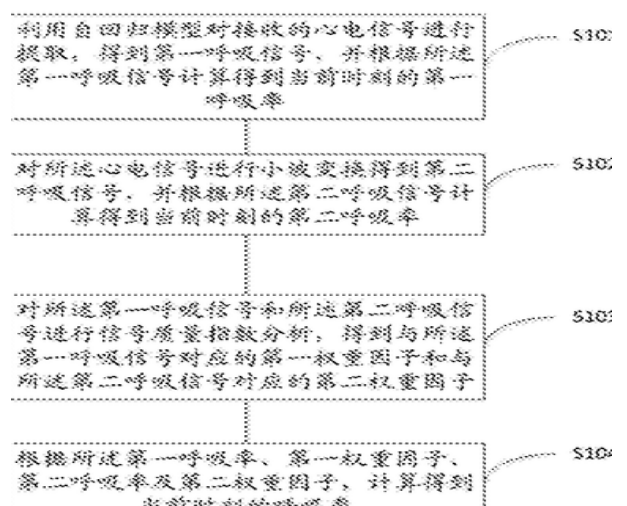 利用自回归模型对接收的心电信号进行
提取，得到第一呼吸信号，并根据所述
第一呼吸信号计算得到当前时刻的第一
呼吸率
S101
对所述心电信号进行小波变换得到第二
呼吸信号，并根据所述第二呼吸信号计
算得到当前时刻的第二呼吸率
S102
对所述第一呼吸信号和所述第二呼吸信
号进行信号质量指数分析，得到与所述
第一呼吸信号对应的第一权重因子和与
所述第二呼吸信号对应的第二权重因子
S103
根据所述第一呼吸率、第一权重因子、
第二呼吸率及第二权重因子，计算得到
当前时刻的呼吸率
S104